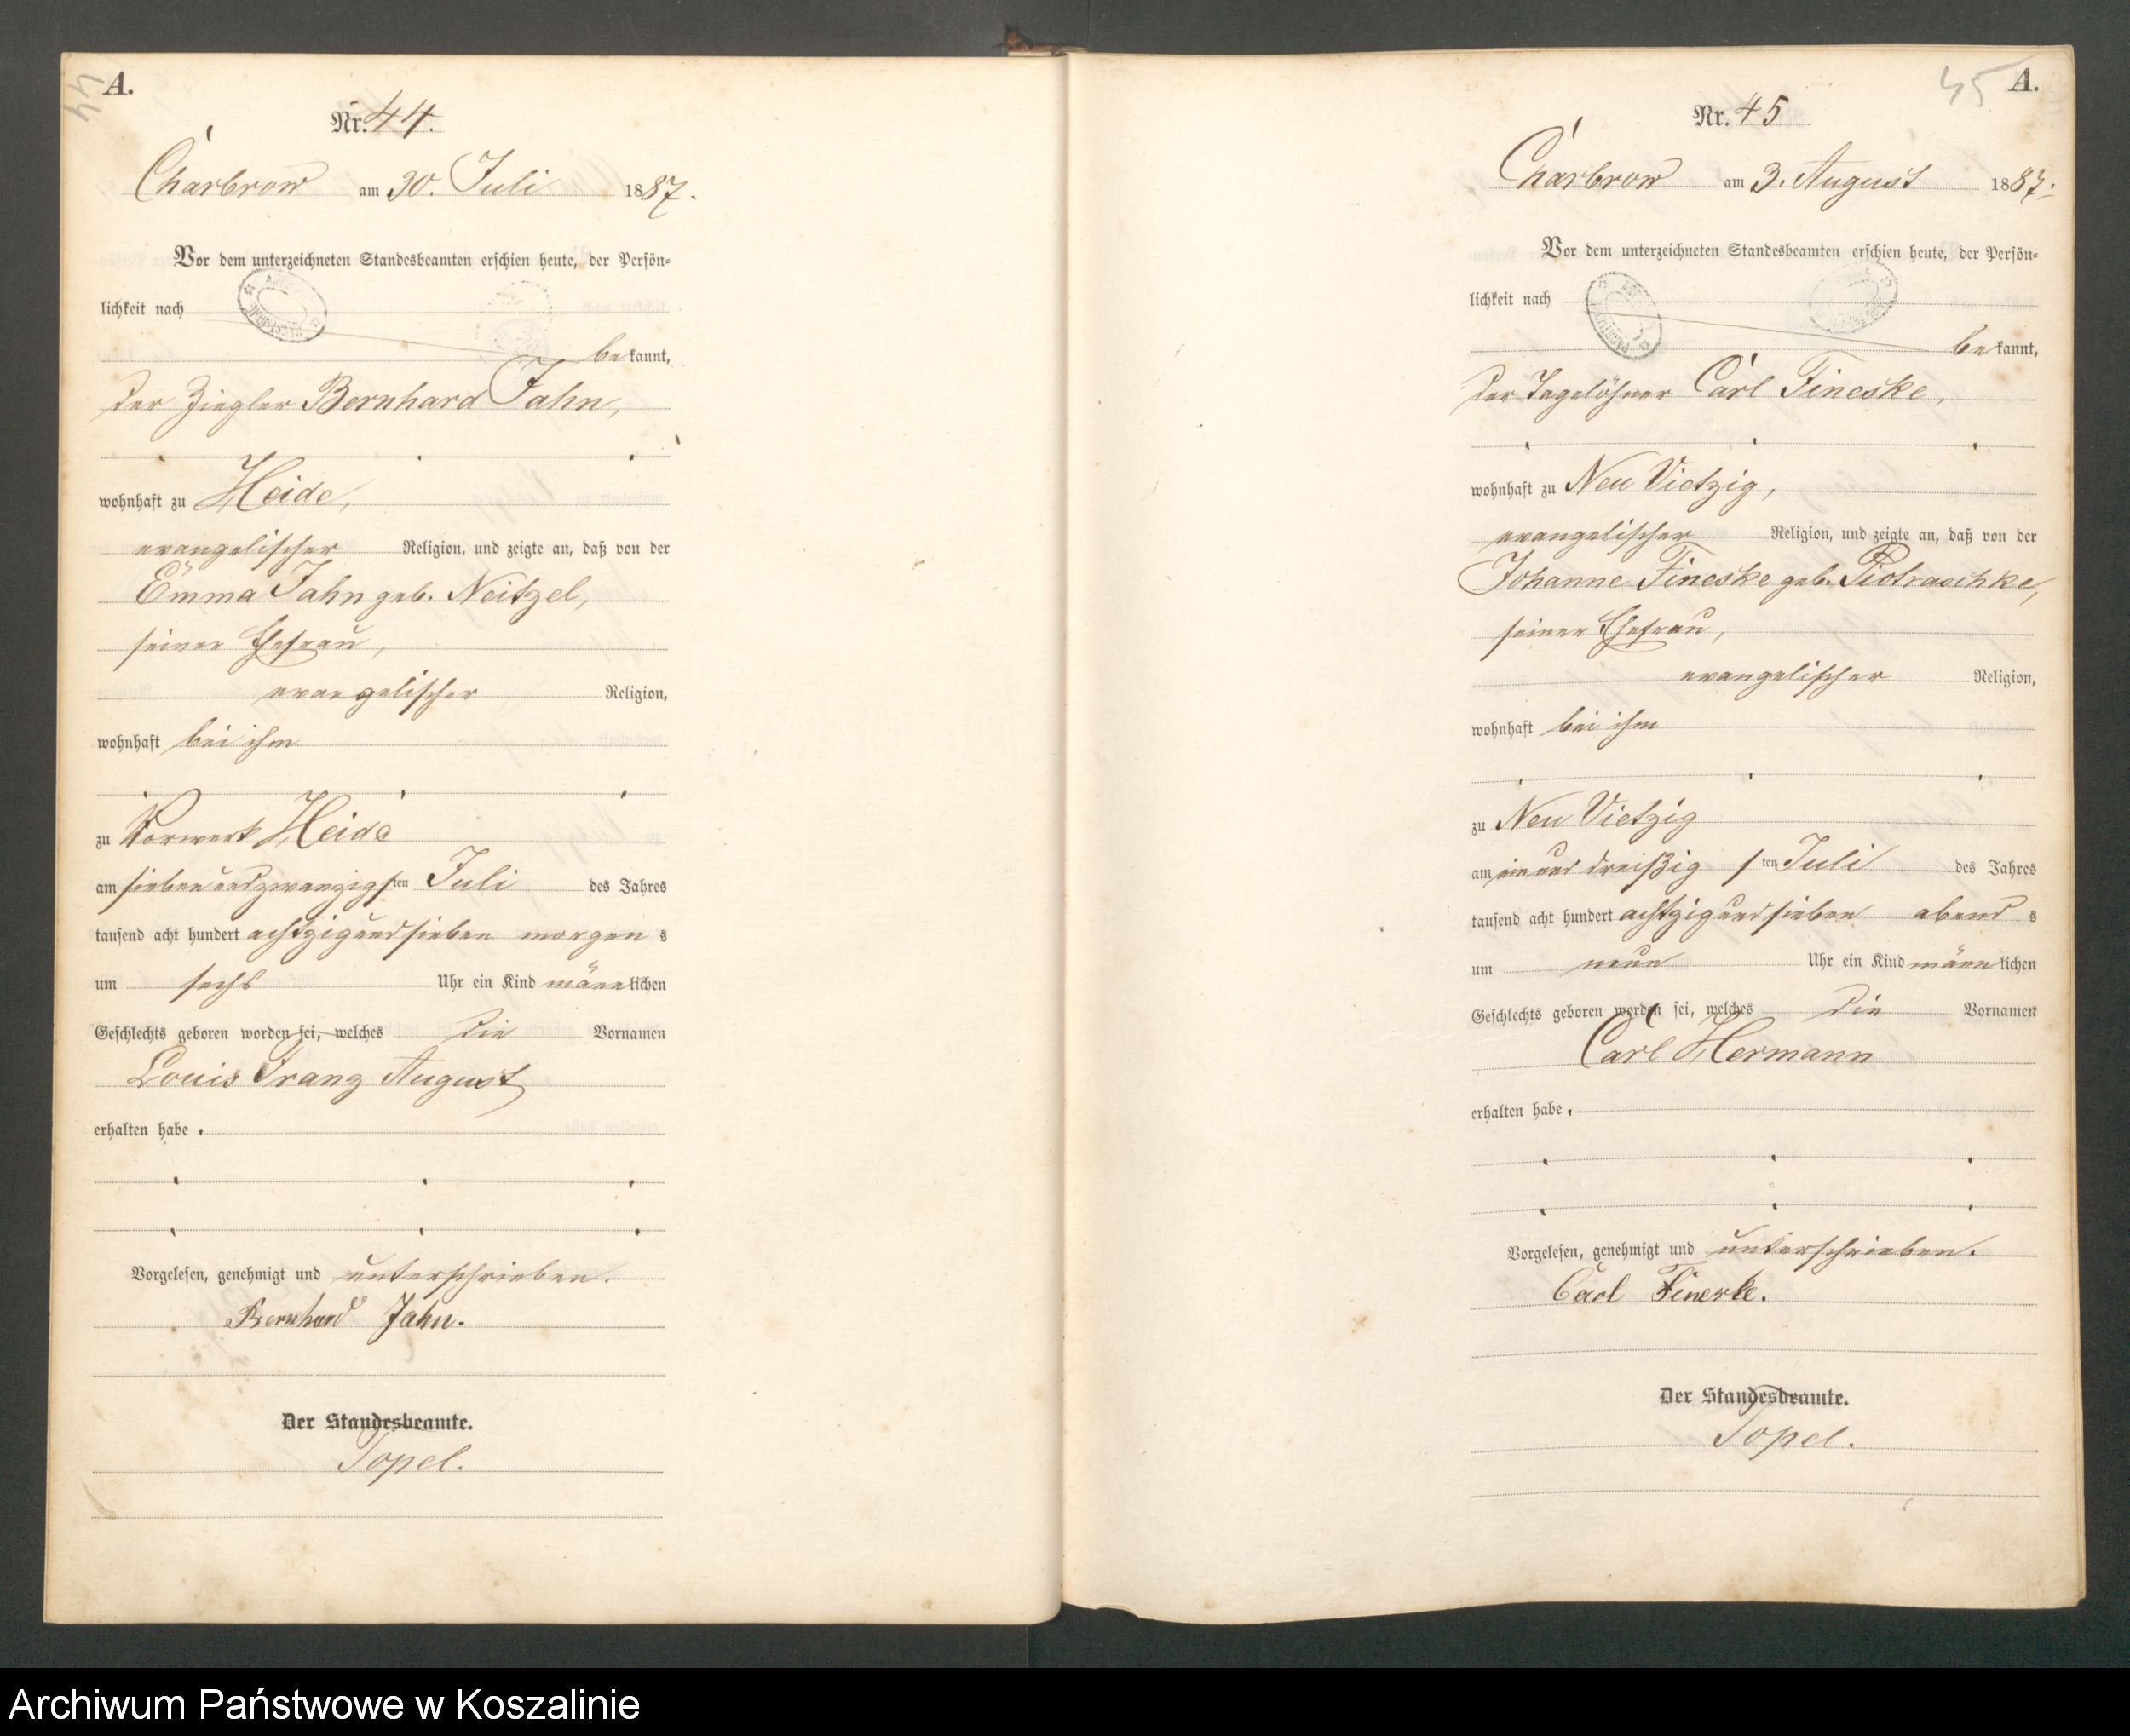 44
A.
Nr. 44.
Charbrow am 30. Juli 1887.
Vor dem unterzeichneten Standesbeamten erschien heute, der Persön=
lichkeit nach
bekannt,
der Ziegler Bernhard Jahn,
wohnhaft zu Heide,
evangelischer Religion, und zeigte an, daß von der
Emma Jahn geb. Neitzel,
seiner Ehefrau,
evangelischer Religion,
wohnhaft bei ihm
zu Vorwerk Heide
am siebenundzwanzigsten Juli des Jahres
tausend acht hundert achtzigundsieben morgens
um sechs Uhr ein Kind männlichen
Geschlechts geboren worden sei, welches die Vornamen
Louis Franz August
erhalten habe.
Vorgelesen, genehmigt und unterschrieben.
Bernhard Jahn.
Der Standesbeamte.
Topel.
45
A.
Nr. 45
Charbrow am 3. August 1887.
Vor dem unterzeichneten Standesbeamten erschien heute, der Persön=
lichkeit nach
bekannt,
der Tagelöhner Carl Fineske,
wohnhaft zu Neu Vietzig,
evangelischer Religion, und zeigte an, daß von der
Johanne Fineske geb. Piotraschke,
seiner Ehefrau,
evangelischer Religion,
wohnhaft bei ihm
zu Neu Vietzig
am einund dreißig sten Juli des Jahres
tausend acht hundert achtzigundsieben abends
um neun Uhr ein Kind männlichen
Geschlechts geboren worden sei, welches die Vornamen
Carl Hermann
erhalten habe.
Vorgelesen, genehmigt und unterschrieben.
Carl Fineske.
Der Standesbeamte.
Topel.
Archiwum Państwowe w Koszalinie